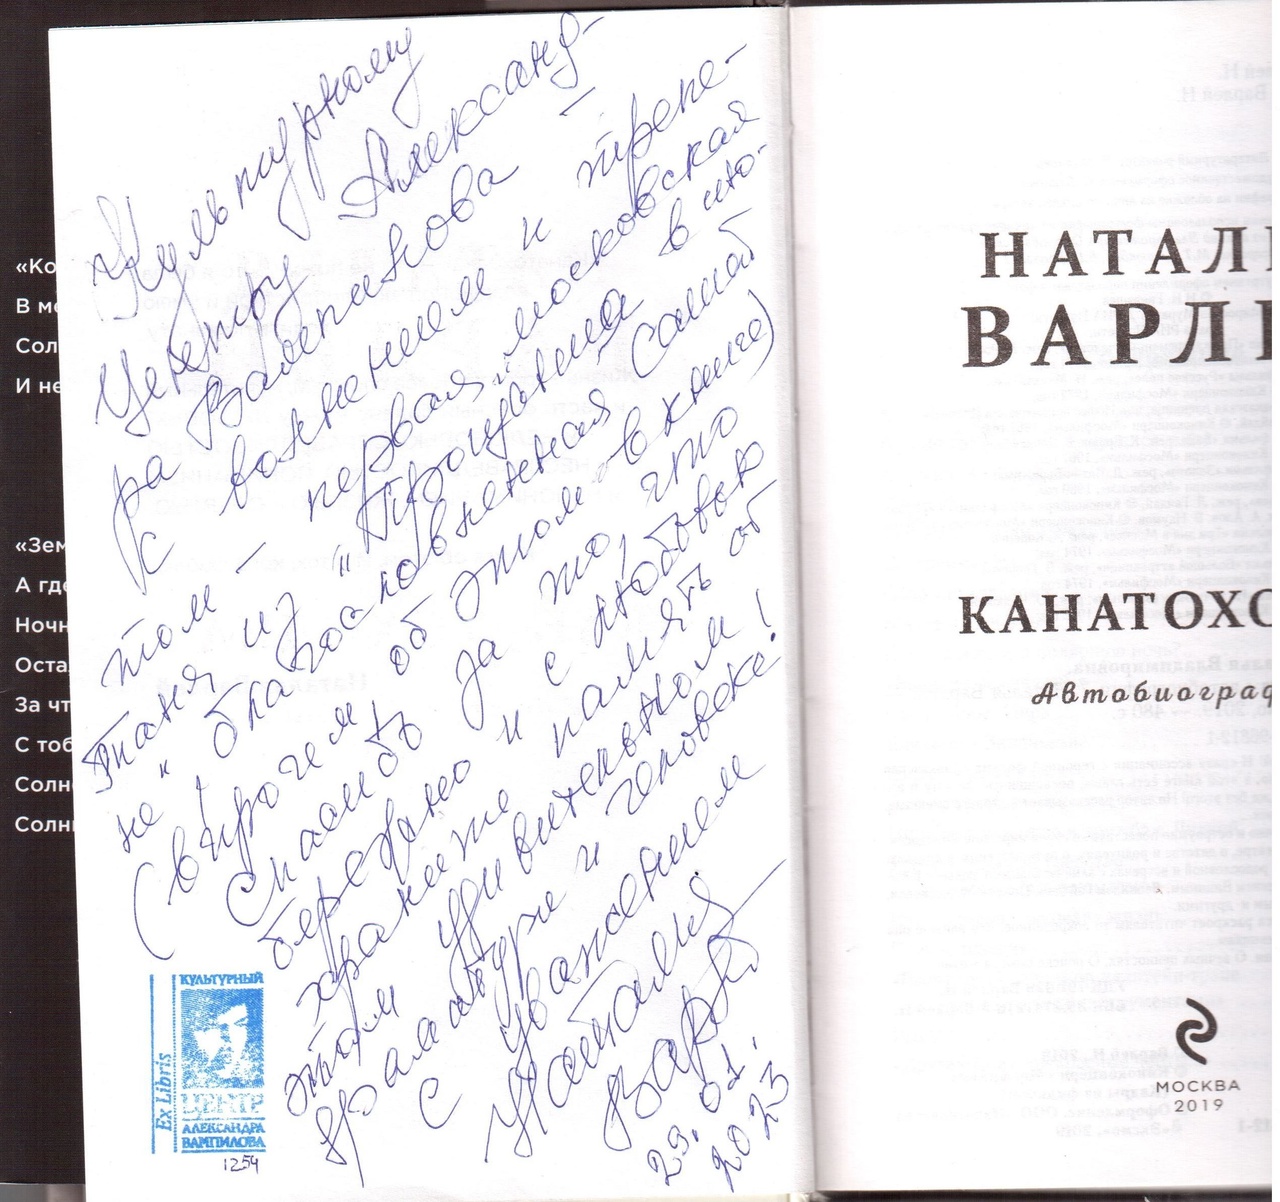 «Ко
В ме
Сол
И не
«Зем
А где
Ночн
Оста
За чт
С тоб
Солн
Солн
Культурному
Центру Александ-
ра Вампилова —
с волнением и трепе-
том — первая "московская
Таня из "Прощания в ию-
не" благословленная Самой
(впрочем, об этом — в книге)
Спасибо за то, что
бережно и с любовью
храните память об
этом удивительном
драматурге и человеке!
С уважением
Наталия
Варлей
29.01.
2023
Ex Libris
КУЛЬТУРНЫЙ
ЦЕНТР
АЛЕКСАНДРА
ВАМПИЛОВА
1254
НАТАЛ
ВАРЛ
КАНАТОХО
Автобиограф
МОСКВА
2019